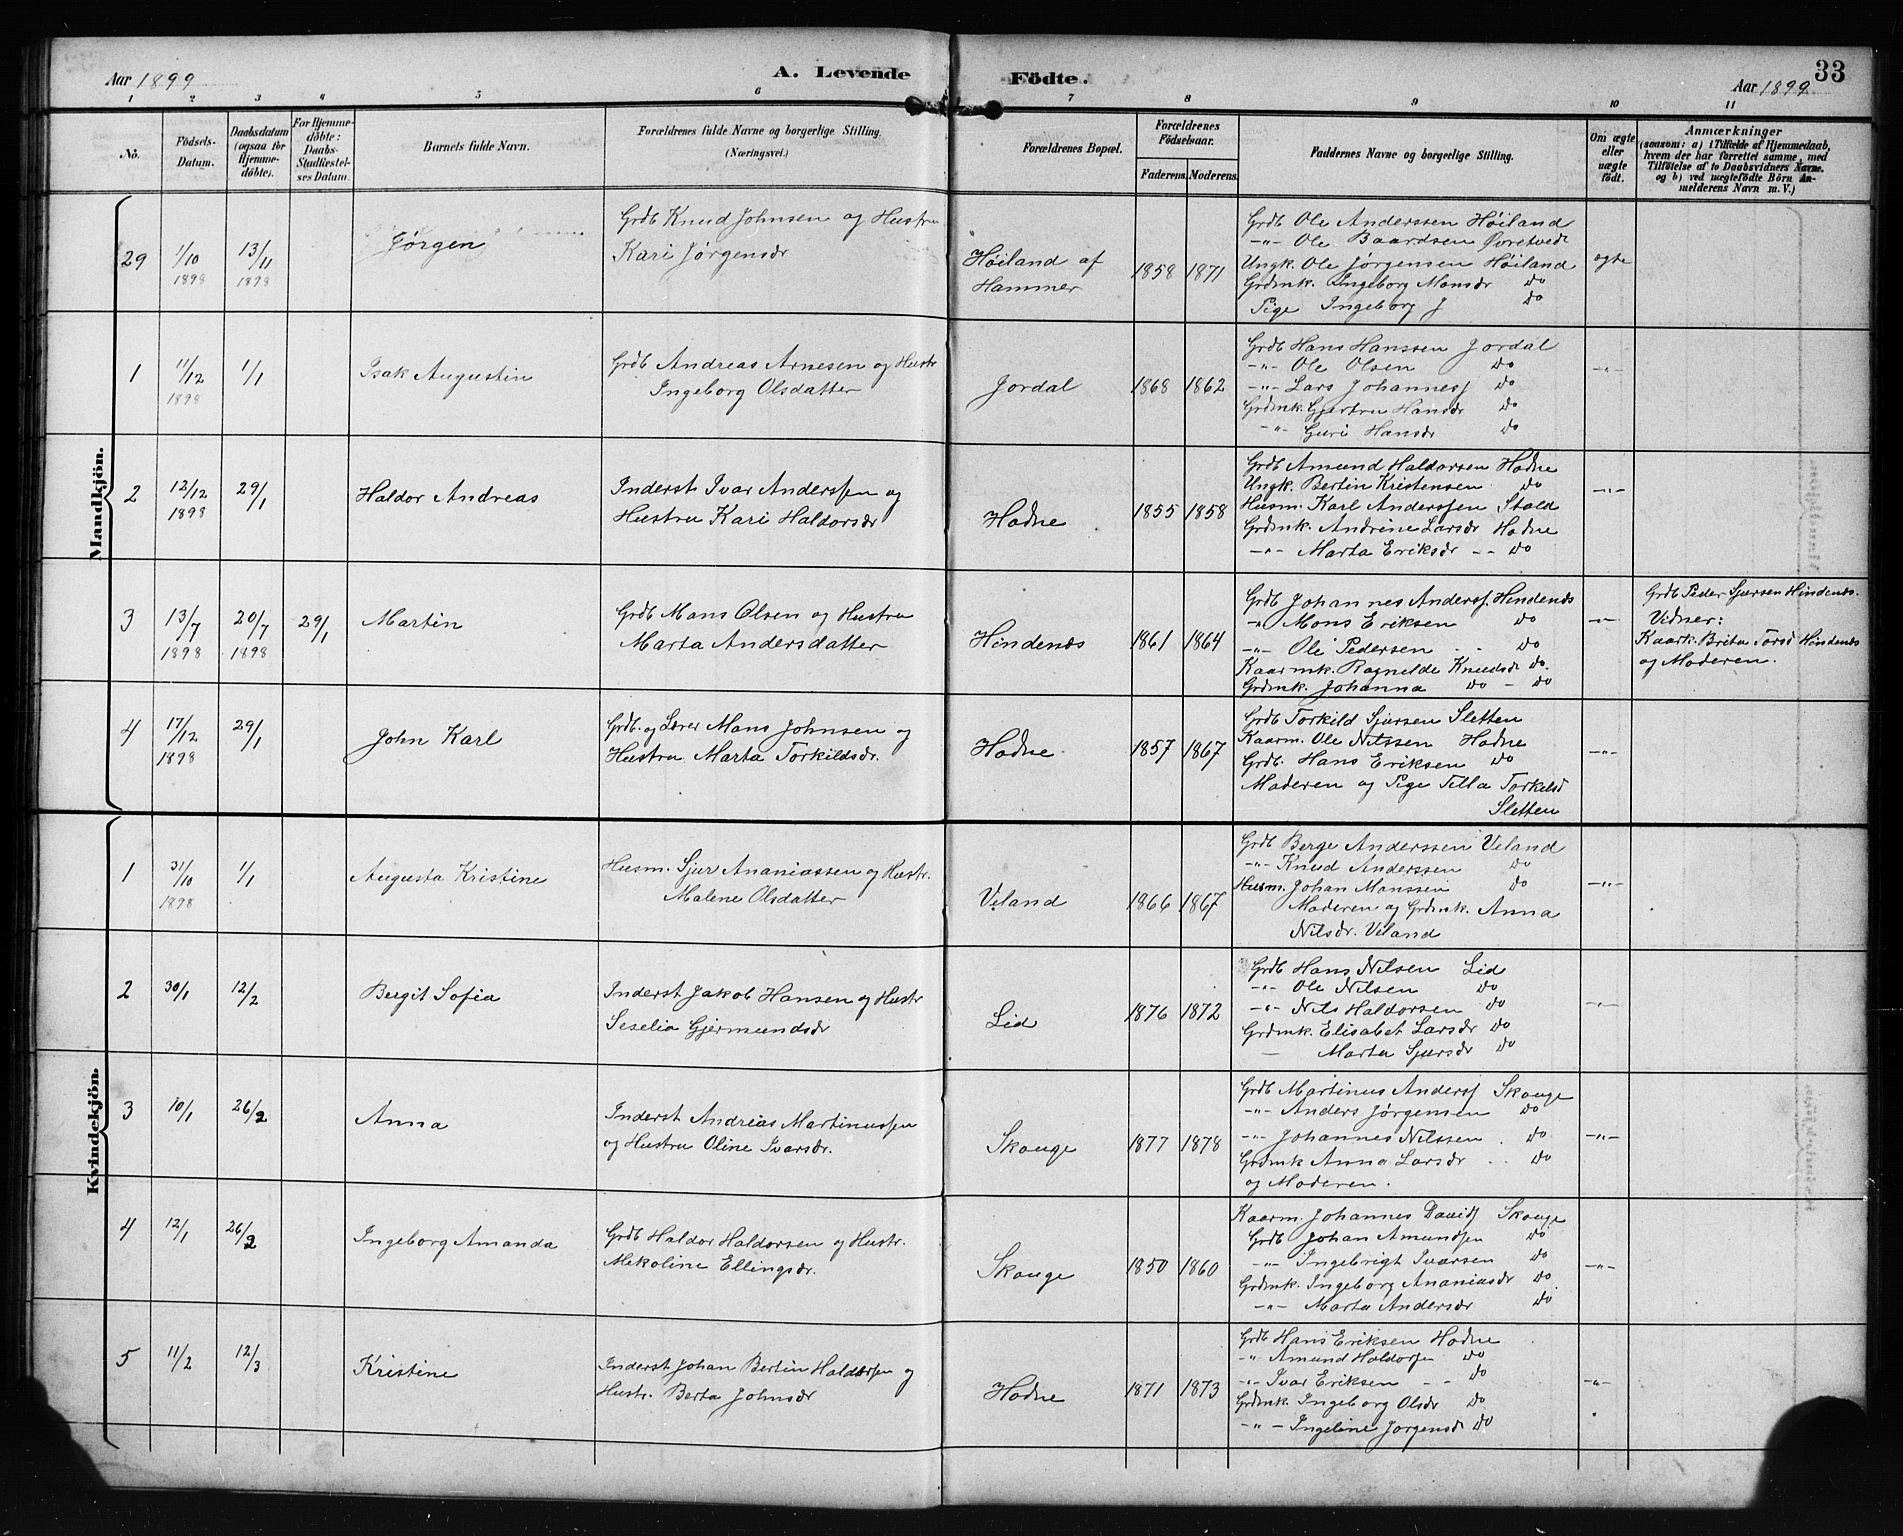 Aar 1899 A. Levende Födte. Aar 1899 33
1 2 3 4 5 6 7 8 9 10 11
No. Födsels-Datum. Daabsdatum (ogsaa for Hjemmedöbte). For Hjemmedöbte: Daabs-Stadfæstelses Datum. Barnets fulde Navn. Forældrenes fulde Navne og borgerlige Stilling. (Næringsvei.) Forældrenes Bopæl. Forældrenes Födselsaar. Faderens. Moderens. Faddernes Navne og borgerlige Stilling. Om ægte eller uægte födt. Anmærkninger
(saasom: a) i Tilfælde af Hjemmedaab, hvem der har forrettet samme, med Tilföielse af to Daabsvidners Navne. og b) ved uægtefödte Börn Anmelderens Navn m. V.)
Mandkjön.
29 1/10 1898 13/11 1898 Jørgen
Grdb Knud Johnsen og Hustru
Kari Jørgensdr
Høiland af
Hammer
1858 1871
Grdb Ole Anderssen Høiland
-"- Ole Baardsen Øvretvedt
Ungk. Ole Jørgensen Høiland
Grdmk. Ingeborg Monsdr do
Pige Ingeborg J do
ægte
1 11/12 1898 1/1 Isak Augustin
Grdb Andreas Arnesen og Hustr
Ingeborg Olsdatter
Jordal 1868 1862
Grdb Hans Hanssen Jordal
-"- Ole Olsen do
-"- Lars Johannesf do
Grdmk. Gjertru Hansdr do
-"- Guri Hansdr do
-"-
2 12/12 1898 29/1 Haldor Andreas
Inderst Ivar Anderssen og
Hustru Kari Haldorsdr
Hodne 1855 1858
Grdb Amund Haldorsen Hodne
Ungk. Bertin Kristensen do
Husm. Karl Anderssen Stold
Grdmk. Andrine Larsdr Hodne
-"- Marta Eriksdr -- do
-"-
3 13/7 1898 20/7 1898 29/1 Martin
Grdb Mons Olsen og Hustru
Marta Andersdatter
Hindenes 1861 1864
Grdb Johannes Andersf. Hindenes
-"- Mons Eriksen do
-"- Ole Pedersen do
Kaarmk. Ragnilde Knudsdr do.
Grdmk. Johanna do - do
-"-
Grdb Peder Sjursen Hindenes.
Vidner:
Kaark. Brita Torsd Hindenes
og Moderen.
4 17/12 1898 29/1 John Karl
Grdb. og Lærer Mons Johnsen og
Hustru Marta Torkildsdr.
Hodne. 1857 1867
Grdb Torkild Sjursen Sletten
Kaarm. Ole Nilssen Hodne
Grdb. Hans Eriksen do
Moderen og Pige Tilla Torkilsd
Sletten
-"-
Kvindekjön.
1 31/10 1898 1/1 Augusta Kristine
Husm. Sjur Ananiassen og Hustr.
Malene Olsdatter
Veland 1866 1867
Grdb Berge Anderssen Veland
-"- Knud Anderssen do
Husm. Johan Monssen do
Moderen og Grdmk. Anna
Nilsdr. Veland
-"-
2 30/1 12/2 Bergit Sofia
Inderst Jakob Hansen og Hustr
Seselia Gjermundsdr
Lid 1876 1872
Grdb Hans Nilsen Lid
-"- Ole Nilsen do
-"- Nils Haldorsen do
Grdmk. Elisabet Larsdr do
- Marta Sjursdr do
-"-
3 10/1 26/2 Anna
Inderst Andreas Martinussen
og Hustru Oline Ivarsdr.
Skouge 1877 1878
Grdb Martinus Andersf Skouge
-"- Anders Jørgensen do
-"- Johannes Nilssen do
Grdmk Anna Larsdr do
og Moderen.
-"-
4 12/1 26/2 Ingeborg Amanda
Grdb Haldor Haldorsen og Hustr.
Mekoline Ellingsdr.
Skouge 1850 1860
Kaarm. Johannes Davidf Skouge
Grdb Johan Amundsen do
-"- Ingebrigt Ivarsen do
Grdmk. Ingeborg Ananiasdr do
-"- Marta Andersdr do
-"-
5 11/2 12/3 Kristine
Inderst Johan Bertin Haldorsen og
Hustr. Berta Johnsdr
Hodne 1871 1873
Grdb Hans Eriksen Hodne
-"- Amund Haldorsen do
-"- Ivar Eriksen -- do
Grdmk. Ingeborg Olsdr do
-"- Ingeline Jørgensd do
-"-